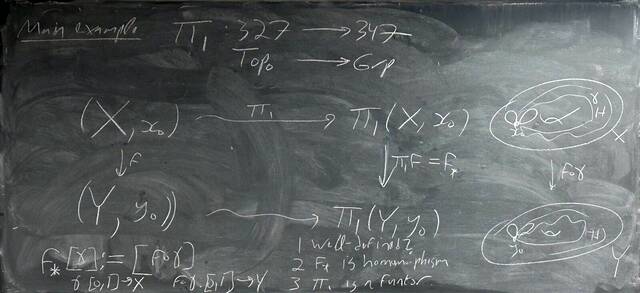 Main example Π₁ : 327 → 347
Top₀ → Grp
(X, x₀) —Π₁→ Π₁(X, x₀)
↓ F ↓ Π₁F = F* ↓ F∘γ
(Y, y₀)) → Π₁(Y, y₀)
F*[γ] := [F∘γ]
γ: [0,1] → X F∘γ: [0,1] → Y
1 well-defined?
2 F* is homomorphism
3 Π₁ is a functor
x₀ α γ H X
y₀ Y